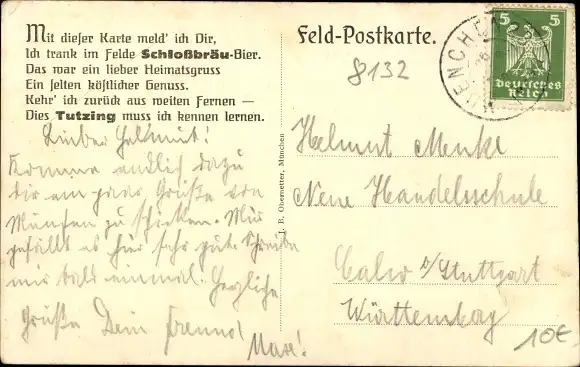 Mit dieſer Karte meld' ich Dir,
Ich trank im Felde Schloßbräu-Bier.
Das war ein lieber Heimatsgruss
Ein ſelten köſtlicher Genuss.
Kehr' ich zurück aus weiten Fernen —
Dies Tutzing muss ich kennen lernen.
Lieber Helmut!
Komme endlich dazu
dir ein paar Grüße von
München zu schicken. Mir
gefällt es hier sehr gut. Schreibe
mir bald einmal. Herzliche
Grüße Dein Freund
Max!
J. B. Obernetter, München
Feld-Postkarte.
8132
5 5
Deutsches
Reich
MUENCHEN
Helmut Menke
Neue Handelsschule
Calw b/Stuttgart
Württemberg
10€